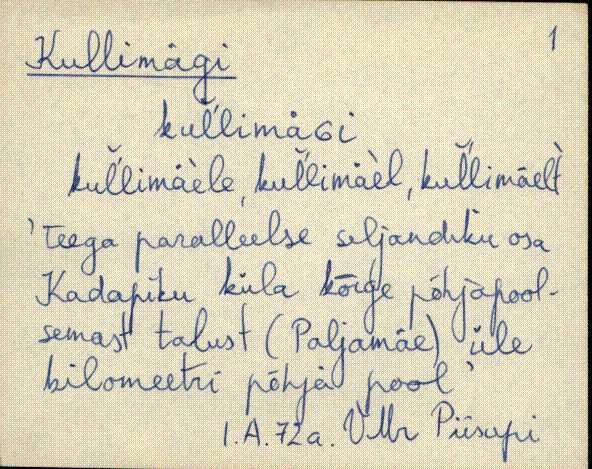 1
Kullimägi
kul̆limäGi
kul̆limäèle, kul̆limäèl, kul̆limäelt̀
'Teega paralleelse seljandiku osa
Kadapiku küla kõige põhjapool-
semast talust (Paljamäe) üle
kilomeetri põhja pool'
1.A.72a. VMr Piisupi